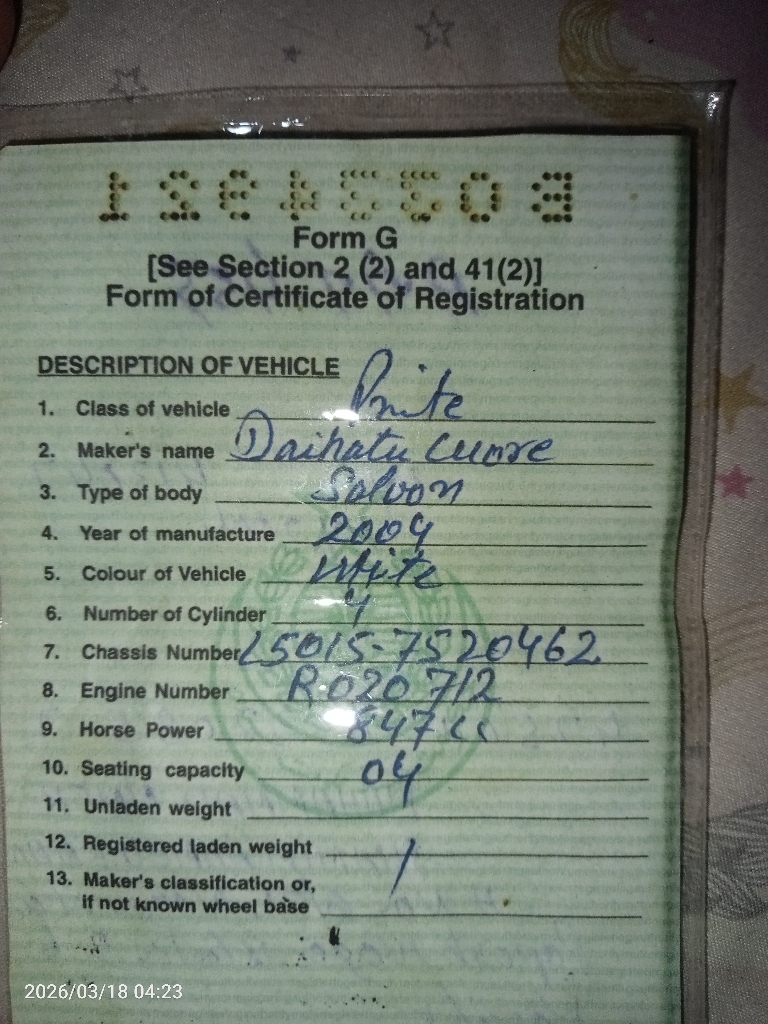 Form G
[See Section 2 (2) and 41(2)]
Form of Certificate of Registration
DESCRIPTION OF VEHICLE
1. Class of vehicle
2. Maker's name Daihatu Cuore
3. Type of body Saloon
4. Year of manufacture 2004
5. Colour of Vehicle White
6. Number of Cylinder 4
7. Chassis Number L5015-7520462
8. Engine Number R020712
9. Horse Power 847cc
10. Seating capacity 04
11. Unladen weight
12. Registered laden weight
13. Maker's classification or,
if not known wheel base
2026/03/18 04:23